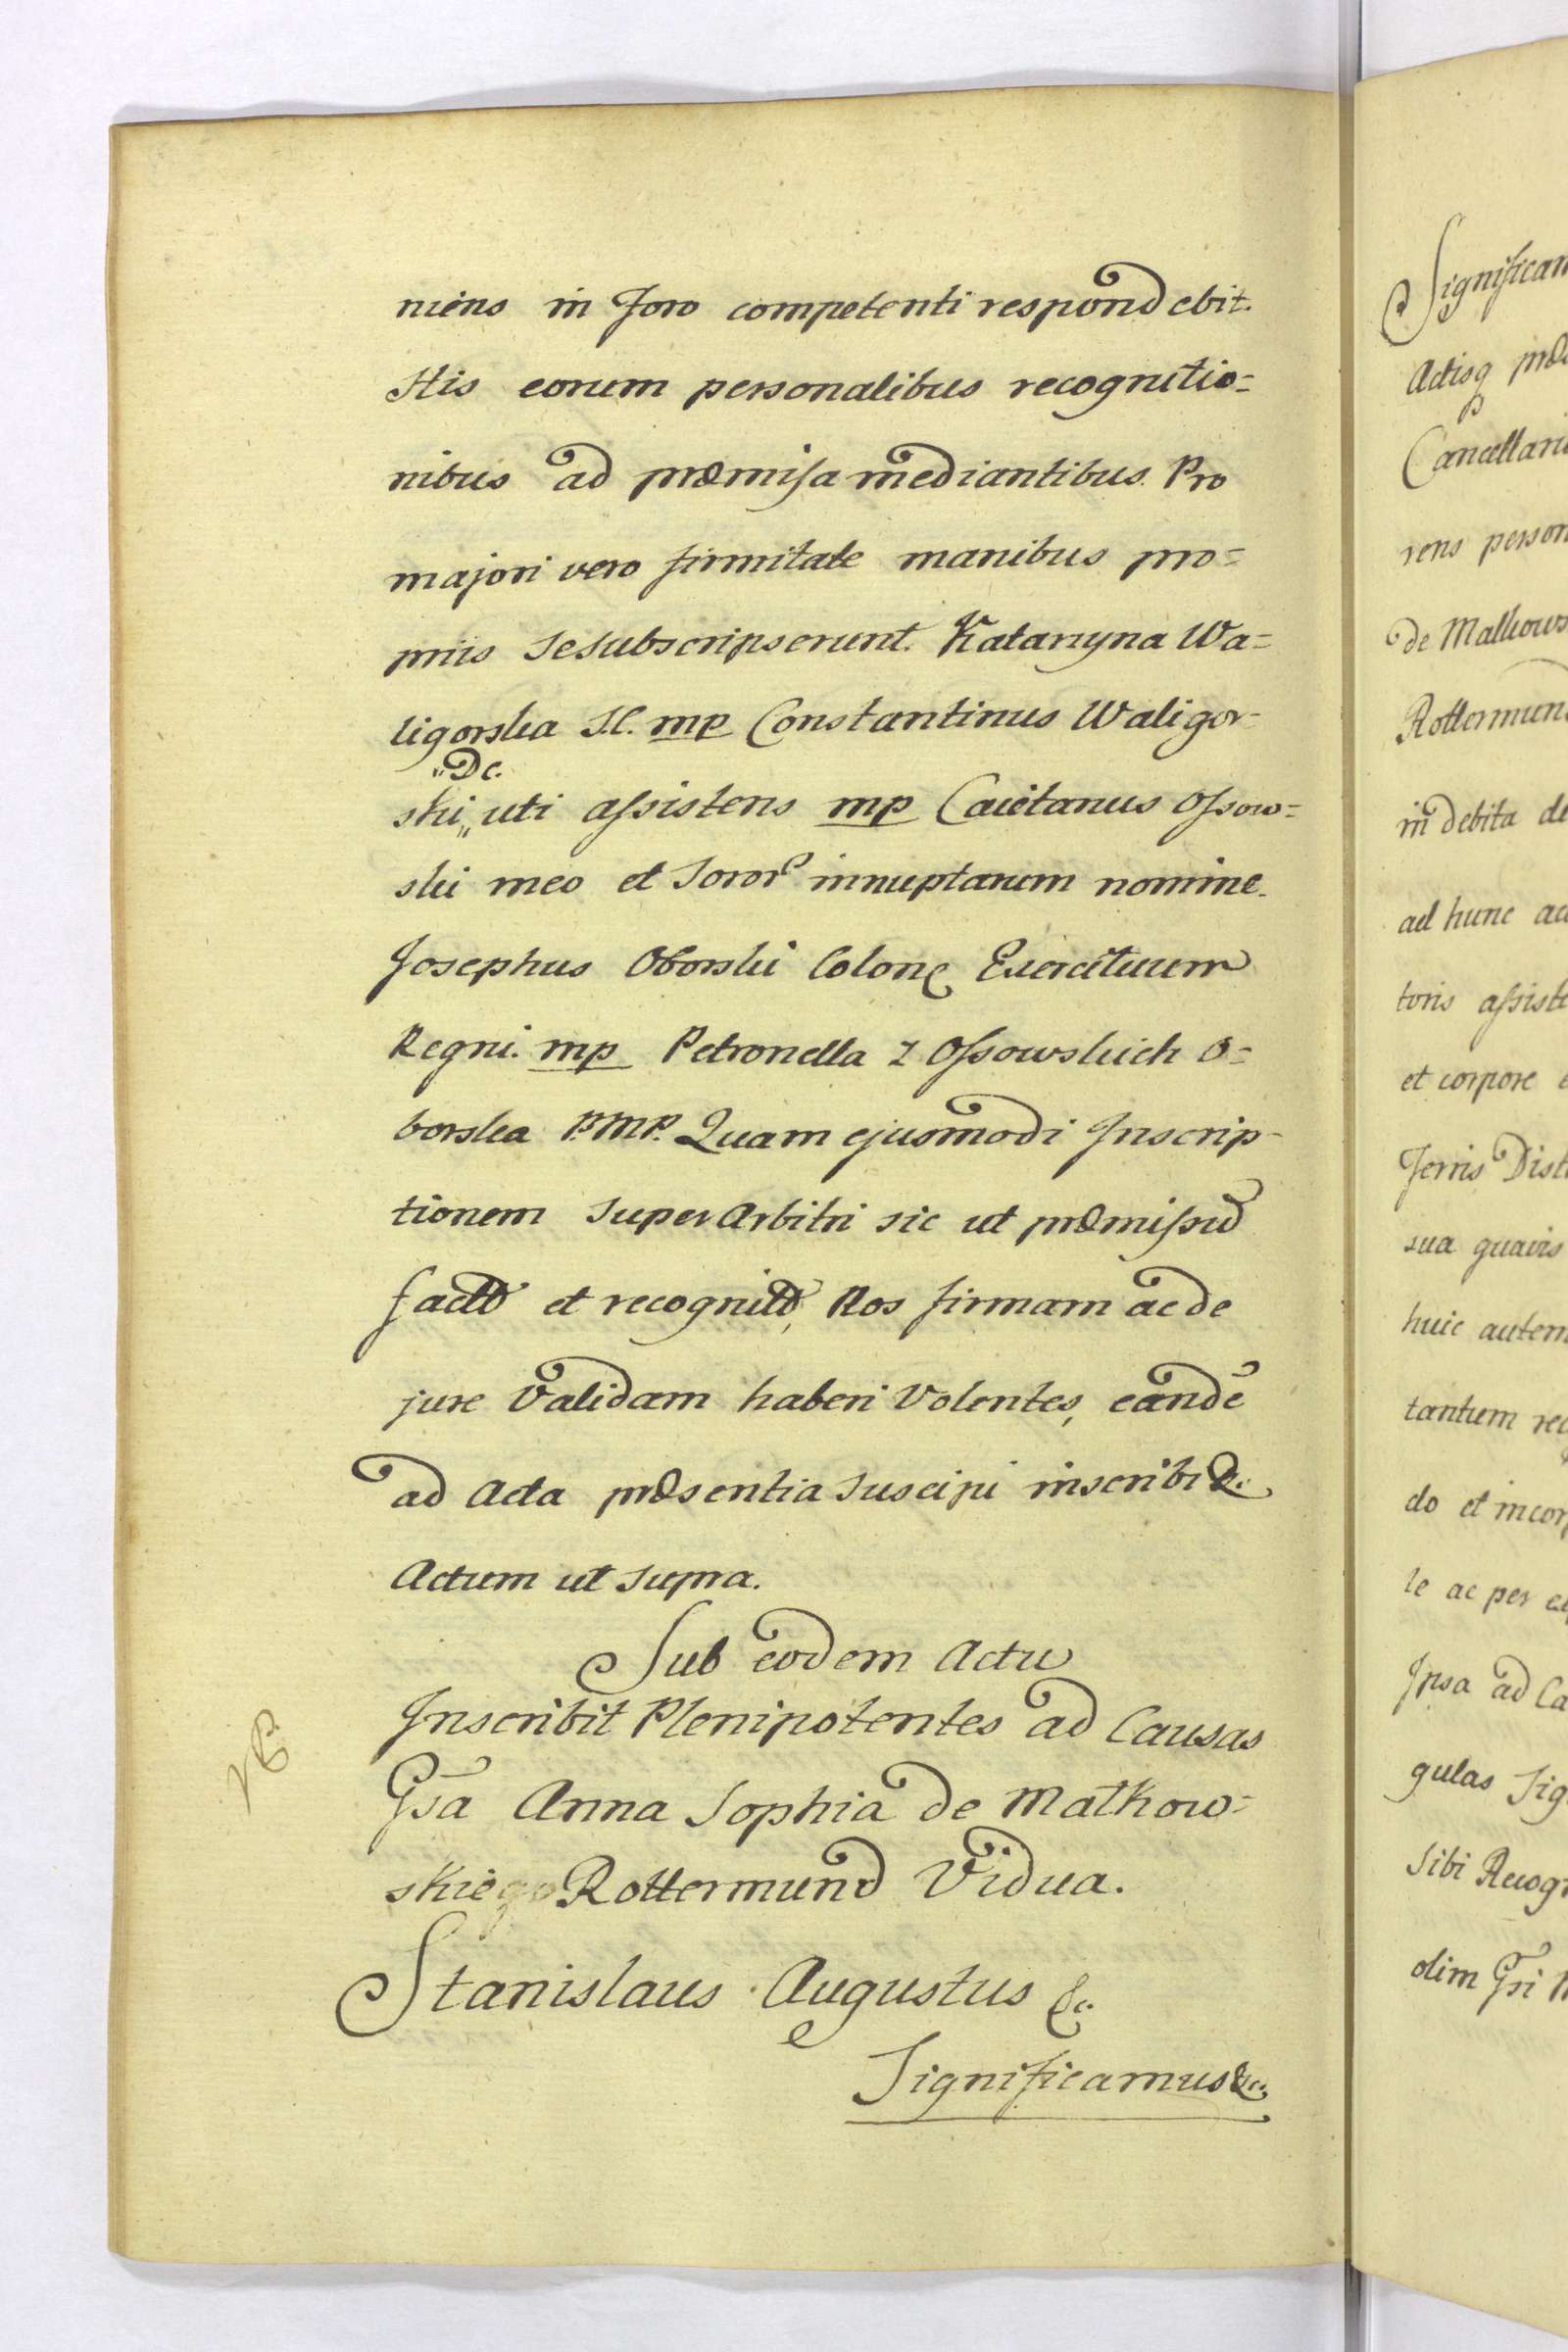 niens in Foro competenti respondebit.
His eorum personalibus recognitio=
nibus ad præmiſa mediantibus. Pro
majori vero firmitate manibus pro=
priis se subscripserunt. Katarzyna Wa=
ligorska S.C. mp Constantinus Waligor-
„Dc.
ski„ uti aſsistens mp Caietanus Oſsow=
ski meo et Soror innuptarum nomine.
Josephus Oborski Colon Exercituum
Regni. mp Petronella z Oſsowskich O=
borska P.M.P. Quam ejusmodi Inscrip-
tionem super Arbitri sic ut præmiſsu
fact et recognit, Nos firmam ac de
jure Validam haberi Volentes, eandē
ad Acta præsentia suscipi inscribi &c.
Actum ut supra.
Sub eodem Actu
Inscribit Plenipotentes ad Causas
Gsa Anna Sophia de Matkow=
skiego Rottermund Vidua.
Stanislaus Augustus &c.
Significamus &c.
NB
Significam
Actisq præ
Cancellari
rens person
de Matkows
Rottermun
in debita de
ad hunc ac
toris aſsiste
et corpore e
Terris Dist
sua quavis
huic autem
tantum rec
do et incorp
le ac per ex
Ipsa ad Ca
gulas Sig
sibi Recogn
olim Gsi